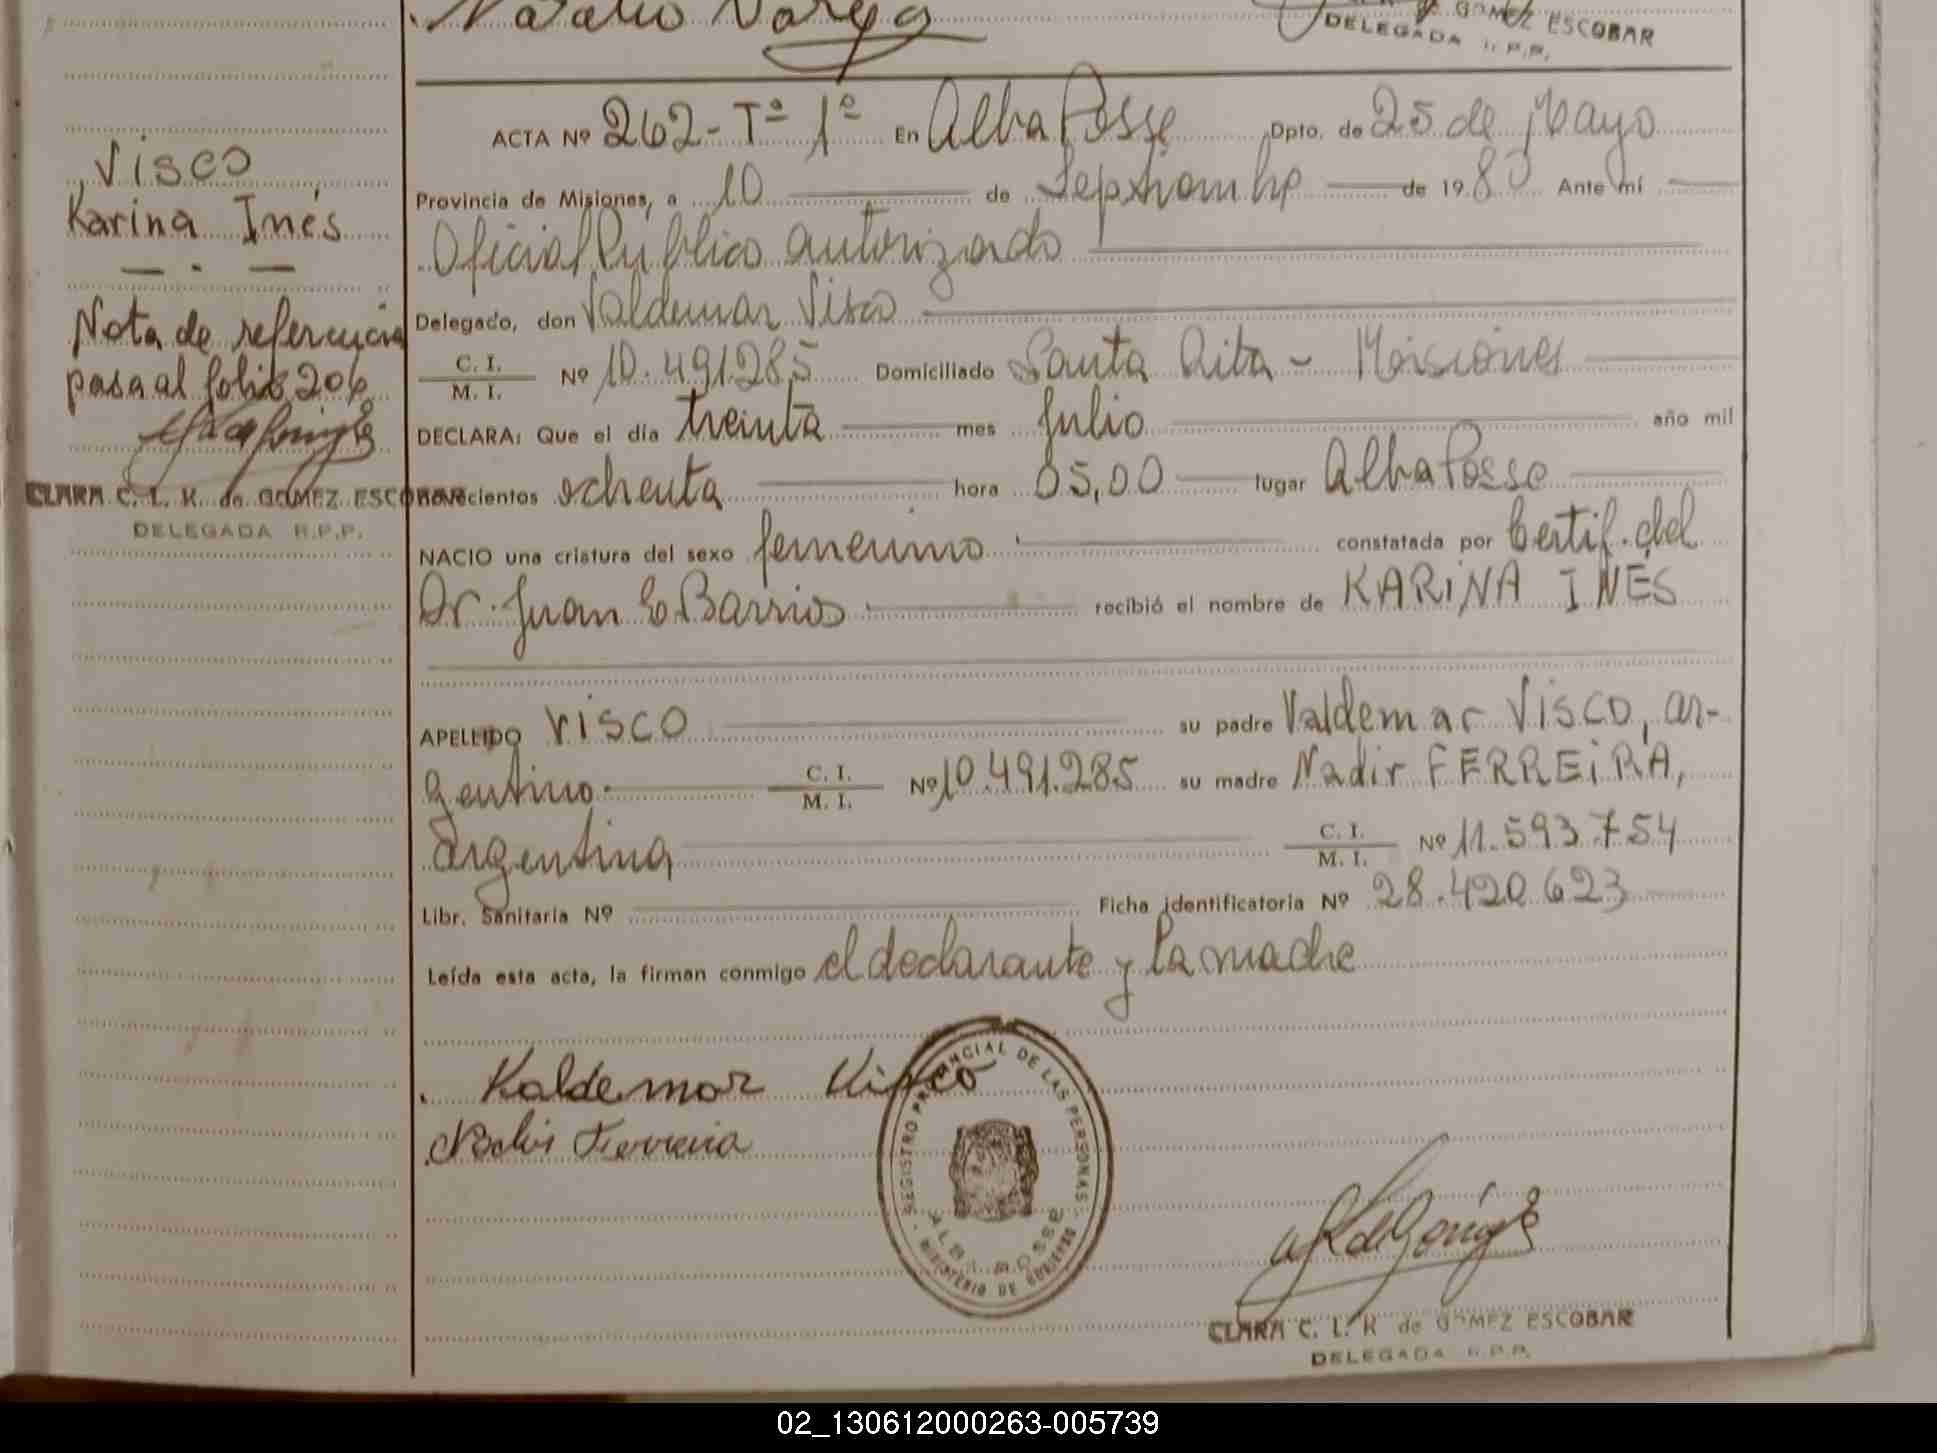 Natalio Varga
GOMEZ ESCOBAR
DELEGADA R.P.P.
ACTA Nº 262-Tº 1º En Alba Posse Dpto. de 25 de Mayo
Provincia de Misiones, a 10 de Septiembre de 1980 Ante mí
Oficial Publico autorizado
Delegado, don Valdemar Visco
C. I.
M. I. Nº 10.491.285 Domiciliado Santa Rita - Misiones
DECLARA: Que el día treinta mes Julio año mil
novecientos ochenta hora 05,00 lugar Alba Posse
NACIO una criatura del sexo femenino constatada por Certif. del
Dr. Juan E Barrios recibió el nombre de KARINA INÉS
APELLIDO VISCO su padre Valdemar VISCO, ar-
gentino. C. I.
M. I. Nº 10.491.285 su madre Nadir FERREIRA,
argentina C. I.
M. I. Nº 11.593.754
Libr. Sanitaria Nº Ficha identificatoria Nº 28.420.623
Leída esta acta, la firman conmigo el declarante y la madre
Valdemar Visco
Nadir Ferreira
REGISTRO PROVINCIAL DE LAS PERSONAS
ALBA POSSE
MINISTERIO DE GOBIERNO
CLARA C. L. K de GOMEZ ESCOBAR
DELEGADA R.P.P.
Visco
Karina Inés
Nota de referencia
pasa al folio 206
CLARA C. L. K. de GOMEZ ESCOBAR
DELEGADA R.P.P.
02_130612000263-005739